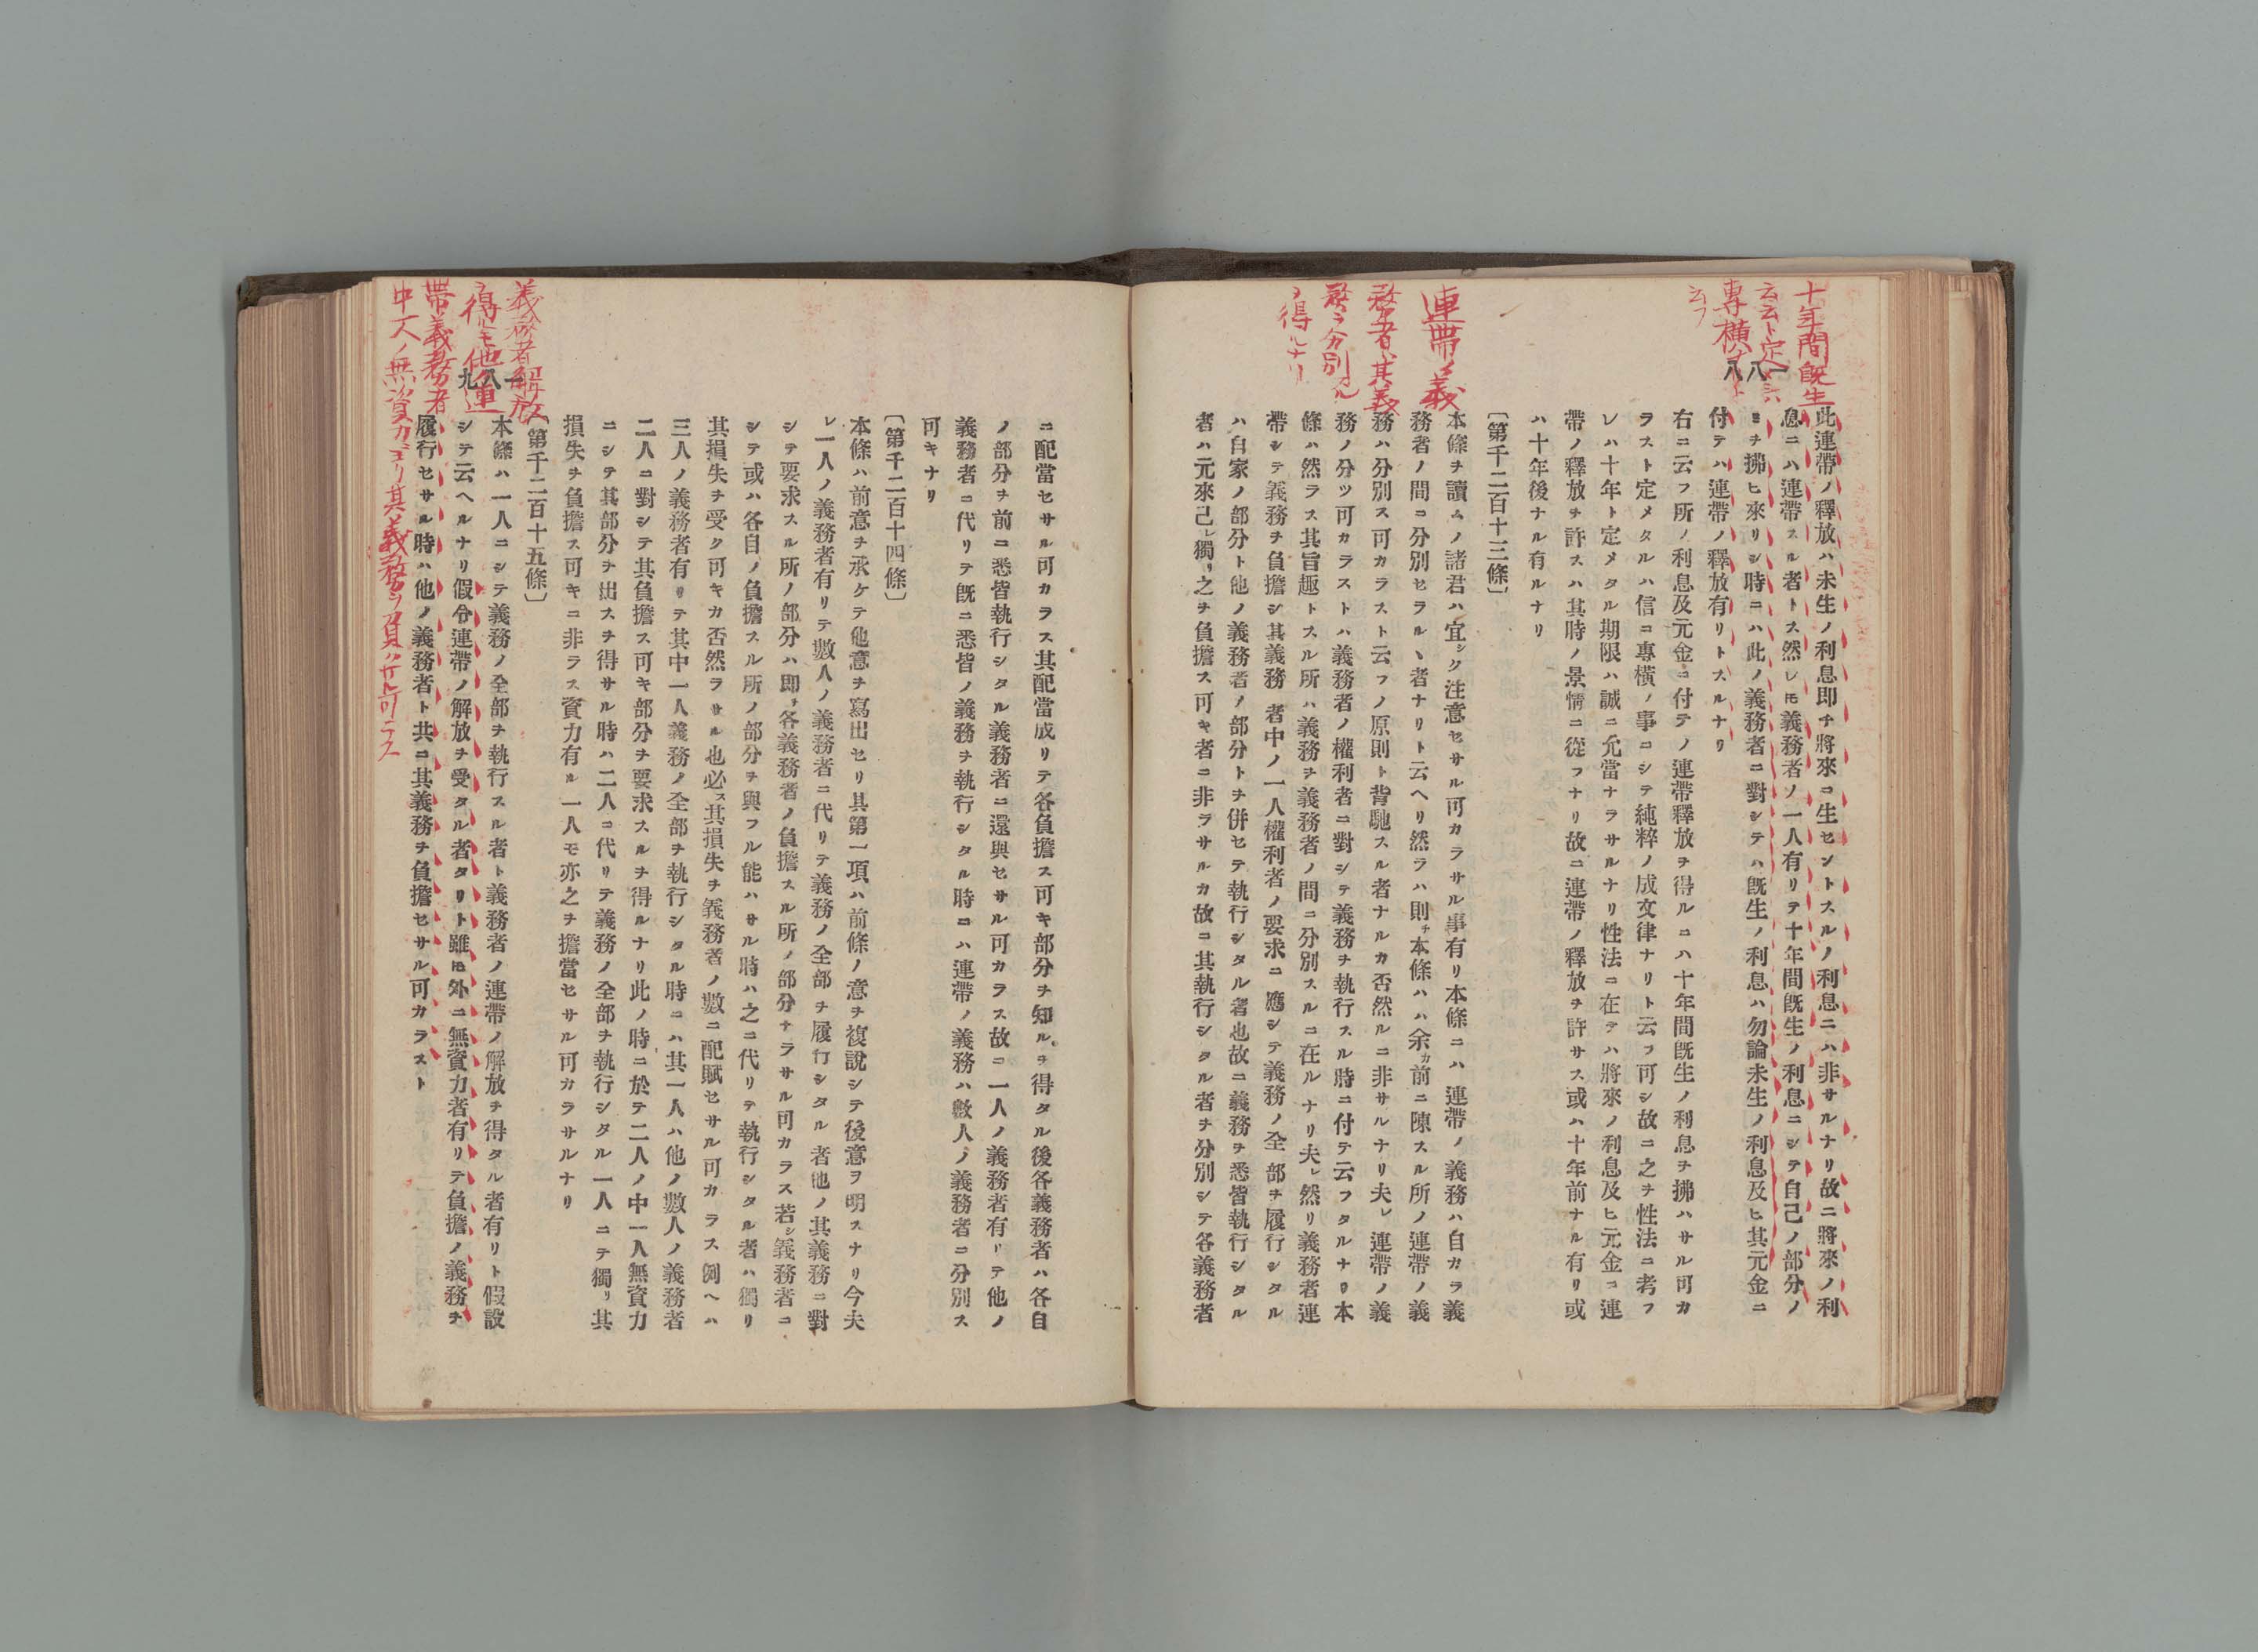 十年間既生
云云ト定メシハ
専横ナリト
云フ
一八八
此連帶ノ釋放ハ未生ノ利息即チ將來ニ生セントスルノ利息ニハ非サルナリ故ニ將來ノ利
息ニハ連帶スル者トス然レ𪜈義務者ノ一人有リテ十年間既生ノ利息ニシテ自己ノ部分ノ
ミチ拂ヒ來リシ時ニハ此ノ義務者ニ對シテハ既生ノ利息ハ勿論未生ノ利息及ヒ其元金ニ
付テハ連帶ノ釋放有リトスルナリ
右ニ云フ所ノ利息及元金ニ付テノ連帶釋放ヲ得ルニハ十年間既生ノ利息ヲ拂ハサル可カ
ラスト定メタルハ信ニ專橫ノ事ニシテ純粹ノ成文律ナリト云フ可シ故ニ之ヲ性法ニ考フ
レハ十年ト定メタル期限ハ誠ニ允當ナラサルナリ性法ニ在テハ將來ノ利息及ヒ元金ニ連
帶ノ釋放ヲ許スハ其時ノ景情ニ從フナリ故ニ連帶ノ釋放ヲ許サス或ハ十年前ナル有リ或
ハ十年後ナル有ルナリ
連帶義
務者ハ其義
務ヲ分別スル
ヲ得ルナリ
〔第千二百十三條〕
本條ヲ讀ムノ諸君ハ宜シク注意セサル可カラサル事有リ本條ニハ連帶ノ義務ハ自カラ義
務者ノ間ニ分別セラルヽ者ナリト云ヘリ然ラハ則チ本條ハハ余カ前ニ陳スル所ノ連帶ノ義
務ハ分別ス可カラスト云フノ原則ト背馳スル者ナルカ否然ルニ非サルナリ夫レ連帶ノ義
務ノ分ツ可カラストハ義務者ノ權利者ニ對シテ義務ヲ執行スル時ニ付テ云フタルナリ本
條ハ然ラス其旨趣トスル所ハ義務ヲ義務者ノ間ニ分別スルニ在ルナリ夫レ然リ義務者連
帶シテ義務ヲ負擔シ其義務者中ノ一人權利者ノ要求ニ應シテ義務ノ全部ヲ履行シタル
ハ自家ノ部分ト他ノ義務者ノ部分トヲ併セテ執行シタル者也故ニ義務ヲ悉皆執行シタル
者ハ元來己レ獨リ之ヲ負擔ス可キ者ニ非ラサルカ故ニ其執行シタル者ヲ分別シテ各義務者
ニ配當セサル可カラス其配當成リテ各負擔ス可キ部分ヲ知ルヲ得タル後各義務者ハ各自
ノ部分ヲ前ニ悉皆執行シタル義務者ニ還與セサル可カラス故ニ一人ノ義務者有リテ他ノ
義務者ニ代リテ既ニ悉皆ノ義務ヲ執行シタル時ニハ連帶ノ義務ハ數人ノ義務者ニ分別ス
可キナリ
〔第千二百十四條〕
本條ハ前意ヲ承ケテ他意ヲ寫出セリ其第一項ハ前條ノ意ヲ複說シテ後意ヲ明スナリ今夫
レ一人ノ義務者有リテ數人ノ義務者ニ代リテ義務ノ全部ヲ履行シタル者他ノ其義務ニ對
シテ要求スル所ノ部分ハ即チ各義務者ノ負擔スル所ノ部分ナラサル可カラス若シ義務者ニ
シテ或ハ各自ノ負擔スル所ノ部分ヲ與フル能ハサル時ハ之ニ代リテ執行シタル者ハ獨リ
其損失ヲ受ク可キカ否然ラサル也必ス其損失ヲ義務者ノ數ニ配賦セサル可カラス例ヘハ
三人ノ義務者有リテ其中一人義務ノ全部ヲ執行シタル時ニハ其一人ハ他ノ數人ノ義務者
二人ニ對シテ其負擔ス可キ部分ヲ要求スルヲ得ルナリ此ノ時ニ於テ二人ノ中一人無資力
ニシテ其部分ヲ出スヲ得サル時ハ二人ニ代リテ義務ノ全部ヲ執行シタル一人ニテ獨リ其
損失ヲ負擔ス可キニ非ラス資力有ル一人モ亦之ヲ擔當セサル可カラサルナリ
義務者解放
ヲ得ルモ他ノ連
帶義務者
中ノ無資力ニヨリ其義務ヲ負ハサル可ラス
一八九
〔第千二百十五條〕
本條ハ一人ニシテ義務ノ全部ヲ執行スル者ト義務者ノ連帶ノ解放ヲ得タル者有リト假設
シテ云ヘルナリ假令連帶ノ解放ヲ受タル者タリト雖𪜈外ニ無資力者有リテ負擔ノ義務ヲ
履行セサル時ハ他ノ義務者ト共ニ其義務ヲ負擔セサル可カラスト